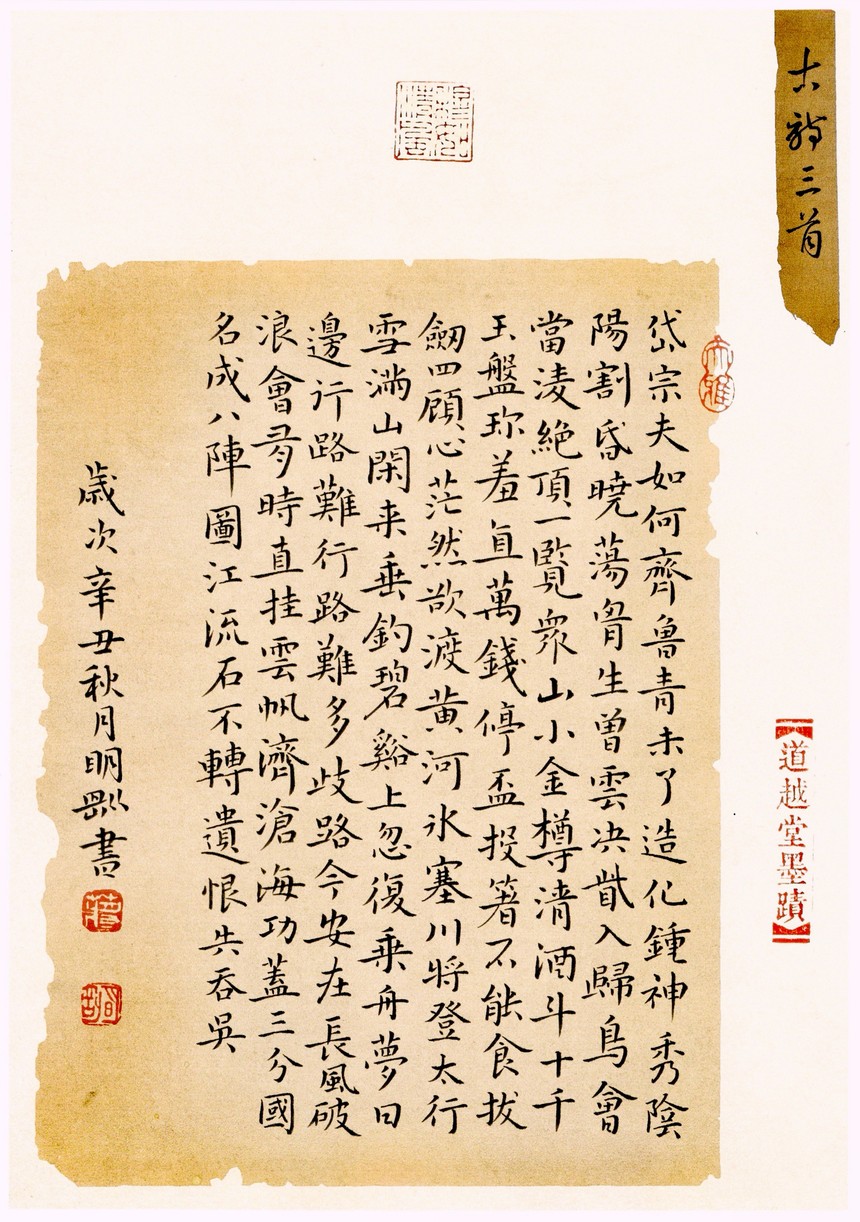 古詩三首
岱宗夫如何齊魯青未了造化鍾神秀陰
陽割昏曉蕩胷生曾雲决眥入歸鳥會
當淩絕頂一覽衆山小金樽清酒斗十千
玉盤珎羞直萬錢停盃投箸不能食拔
劒四顧心茫然欲渡黃河氷塞川將登太行
雪滿山閑来垂釣碧谿上忽復乗舟夢日
邊行路難行路難多歧路今安在長風破
浪會有時直挂雲帆濟滄海功蓋三分國
名成八陣圖江流石不轉遺恨失吞吳
歲次辛丑秋月明書
【道越堂墨蹟】